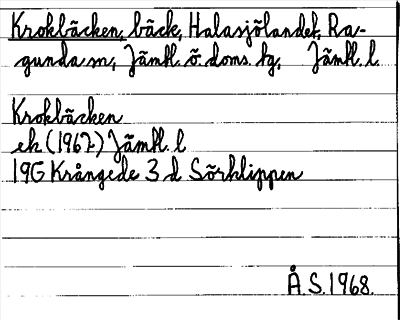 Krokbäcken, bäck, Halasjölandet, Ra-
gunda sn, Jämtl. ö. doms. tg, Jämtl. l
Krokbäcken
ek (1967) Jämtl. l
19G Krångede 3 d Sörklippen
Å.S. 1968.